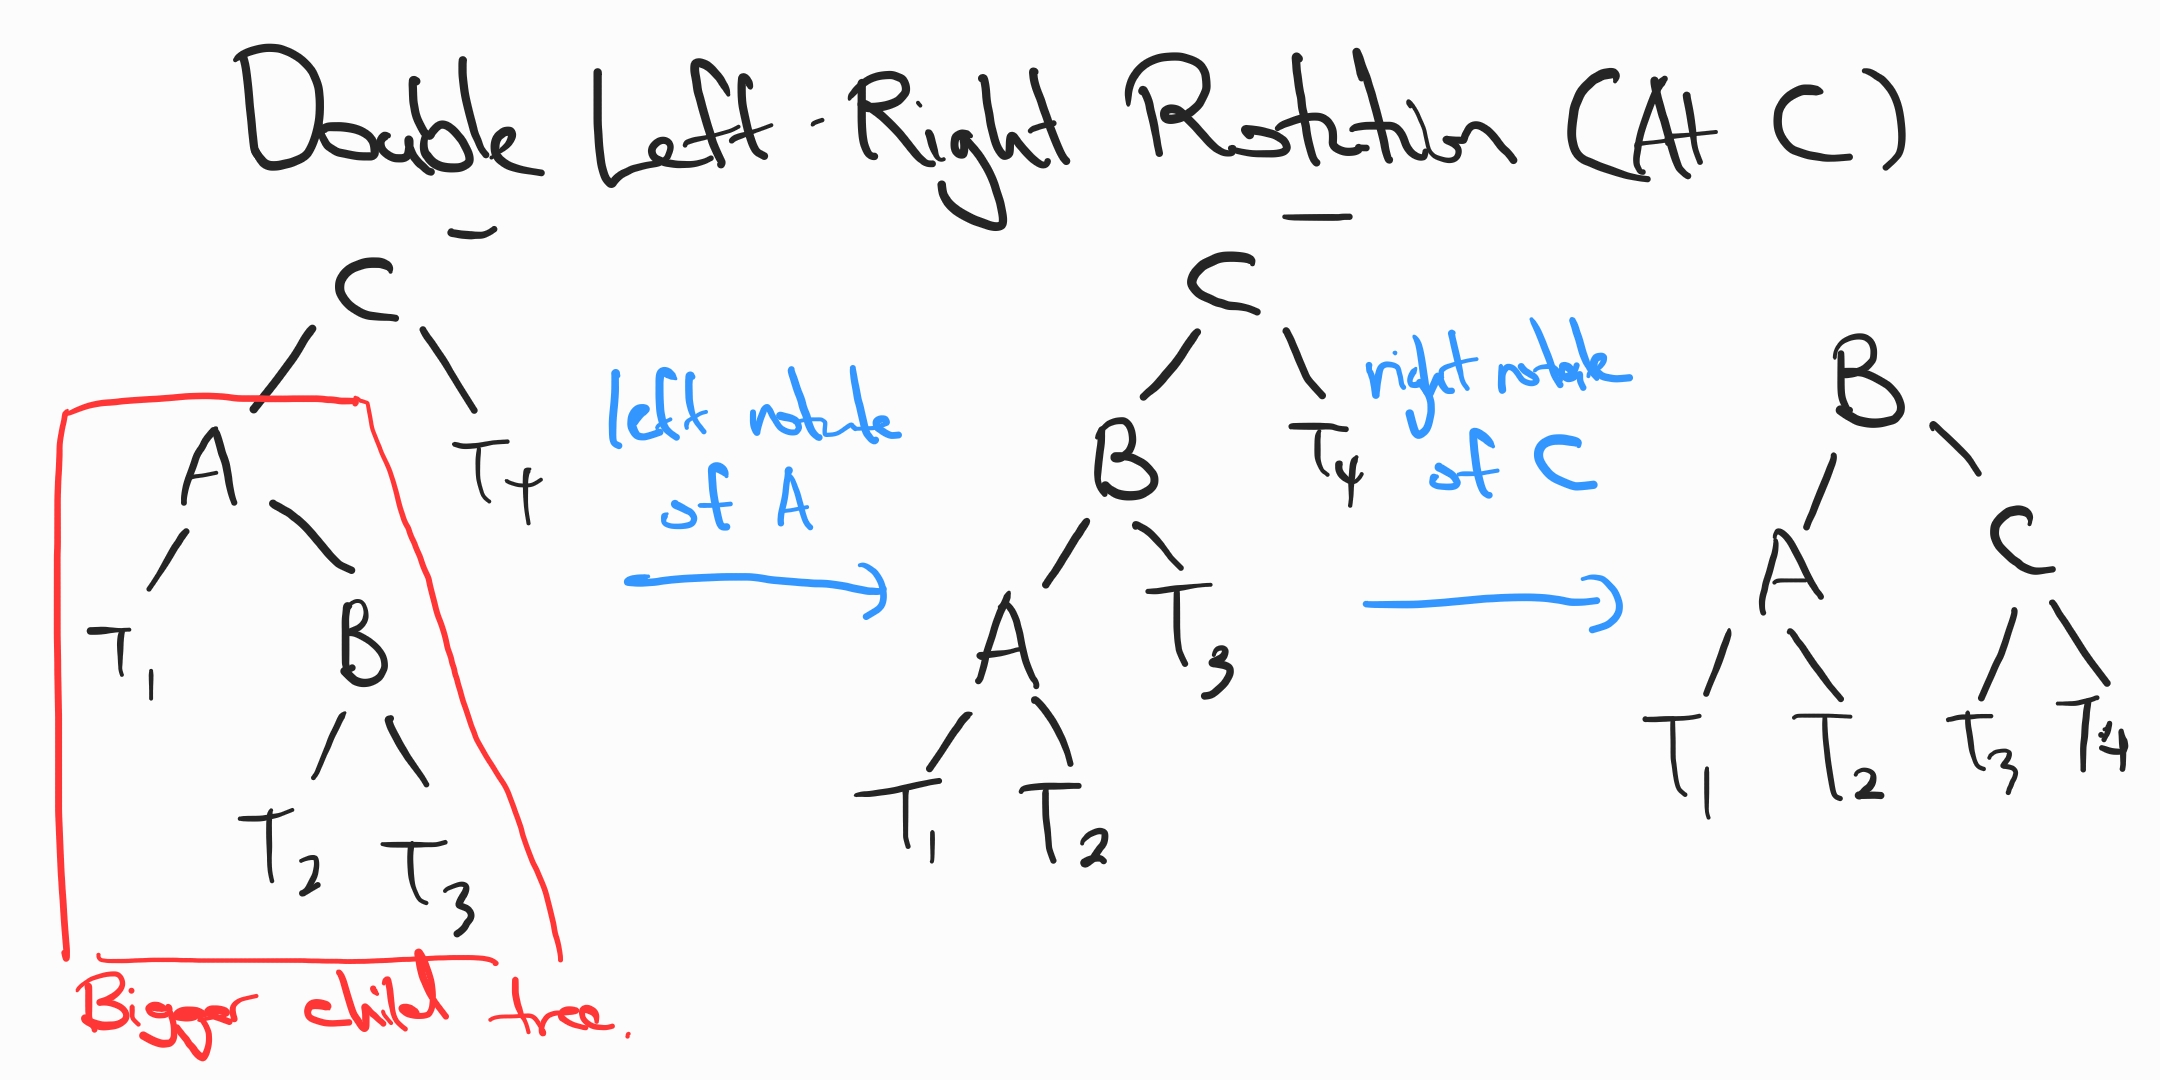 Double Left-Right Rotation (At C)
C
A T4
T1 B
T2 T3
Bigger child tree.
left rotate
of A
C
B T4
A T3
T1 T2
right rotate
of C
B
A C
T1 T2 T3 T4